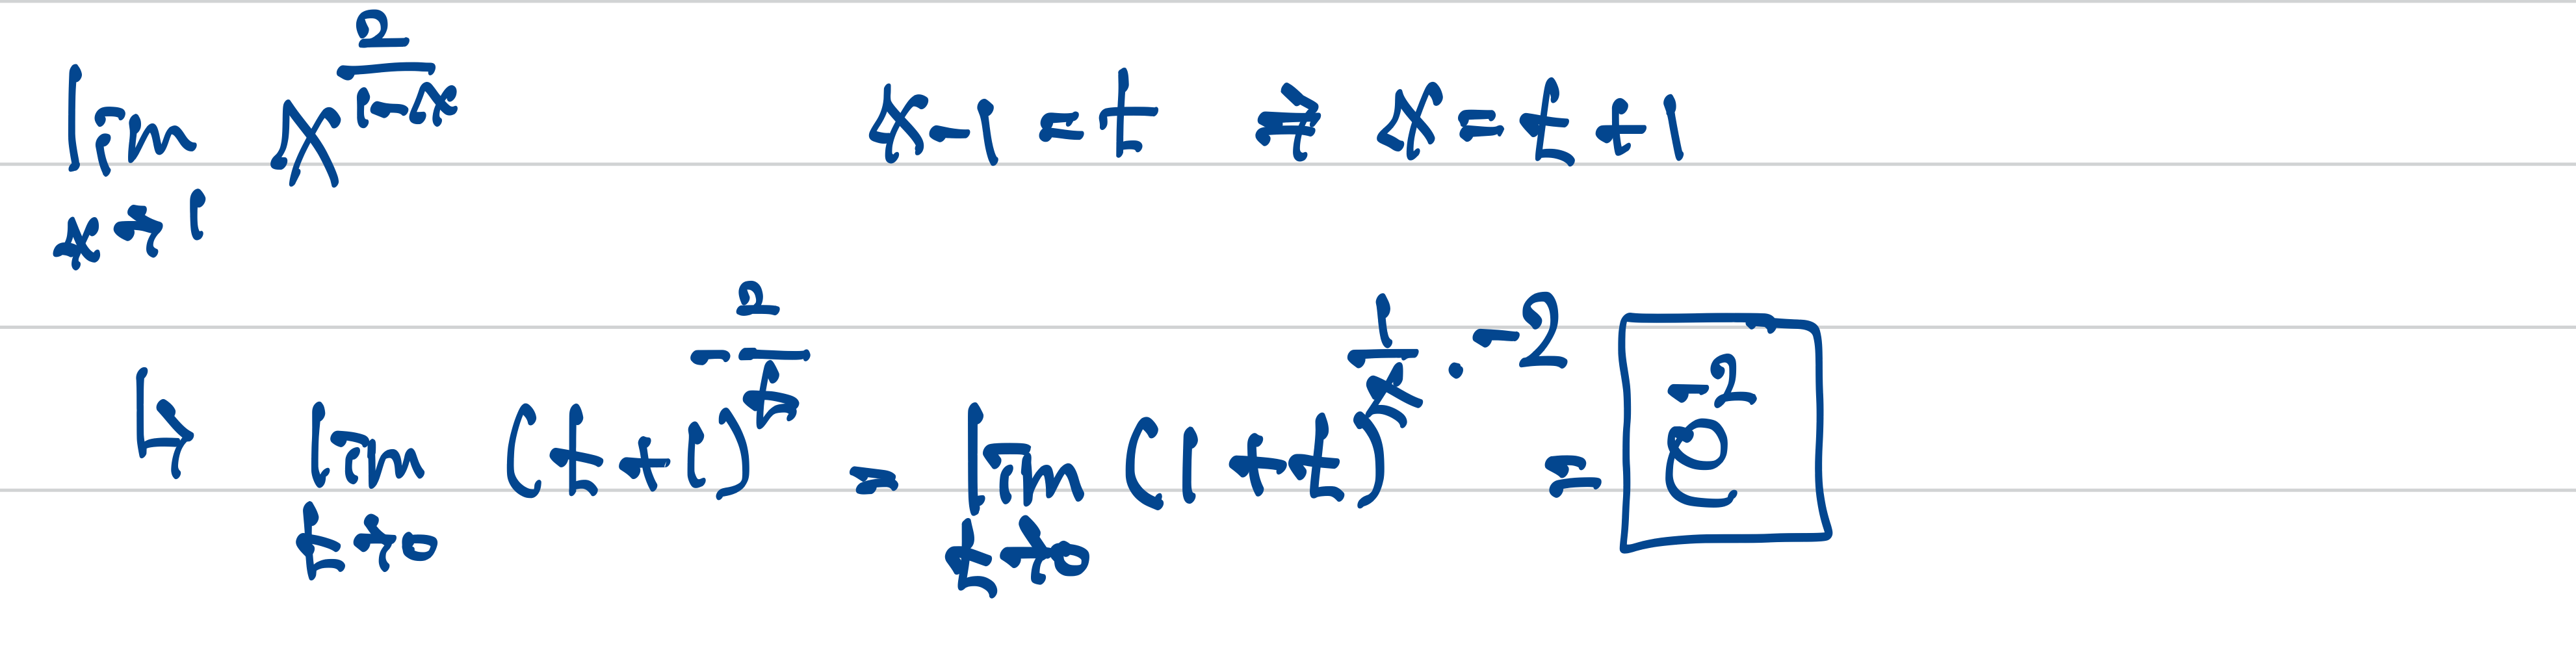 lim x→1 x^(2/(1-x))    x-1 = t ⇒ x = t+1
↳ lim t→0 (t+1)^(-2/t) = lim t→0 (1+t)^(1/t · -2) = e^-2